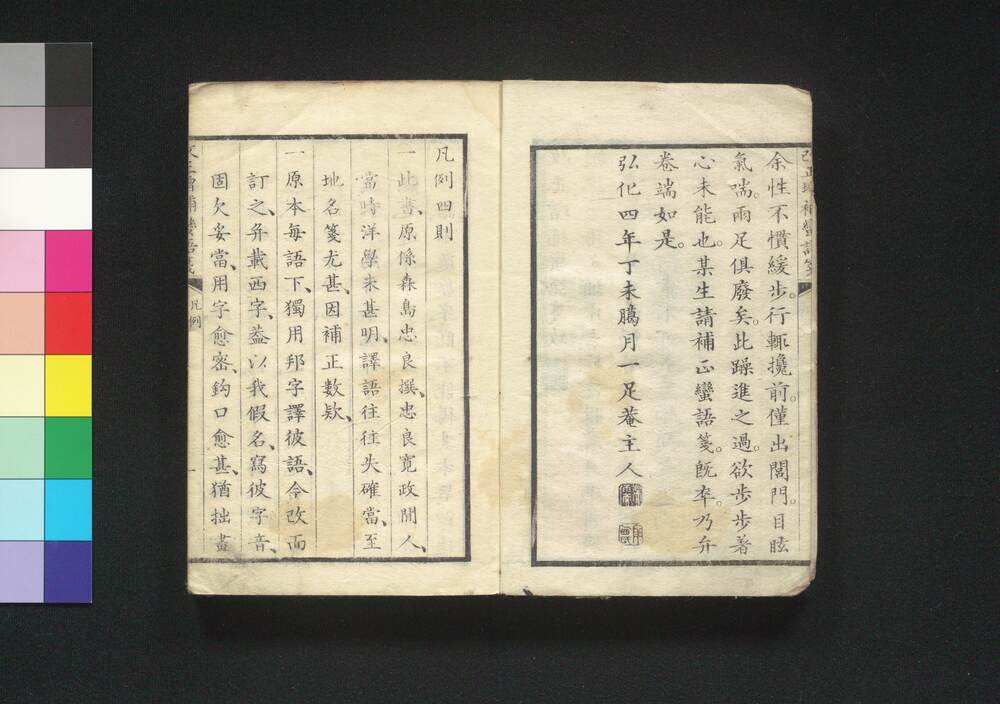 余性不慣緩步。行輒攙前。僅出閤門。目眩
氣喘。兩足俱廢矣。此躁進之過。欲步步著
心未能也。某生請補正蠻語箋。旣卒。乃弁
卷端如是。
弘化四年丁未臈月一足菴主人
凡例四則
一此書、原係森島忠良撰、忠良寬政間人、
當時洋學未甚明、譯語往往失確當、至
地名箋尤甚、因補正數欵、
一原本每語下、獨用邦字譯彼語、今改而
訂之、弁載西字、葢以我假名、寫彼字音、
固欠妥當、用字愈密、鈎口愈甚、猶拙畫
凡例